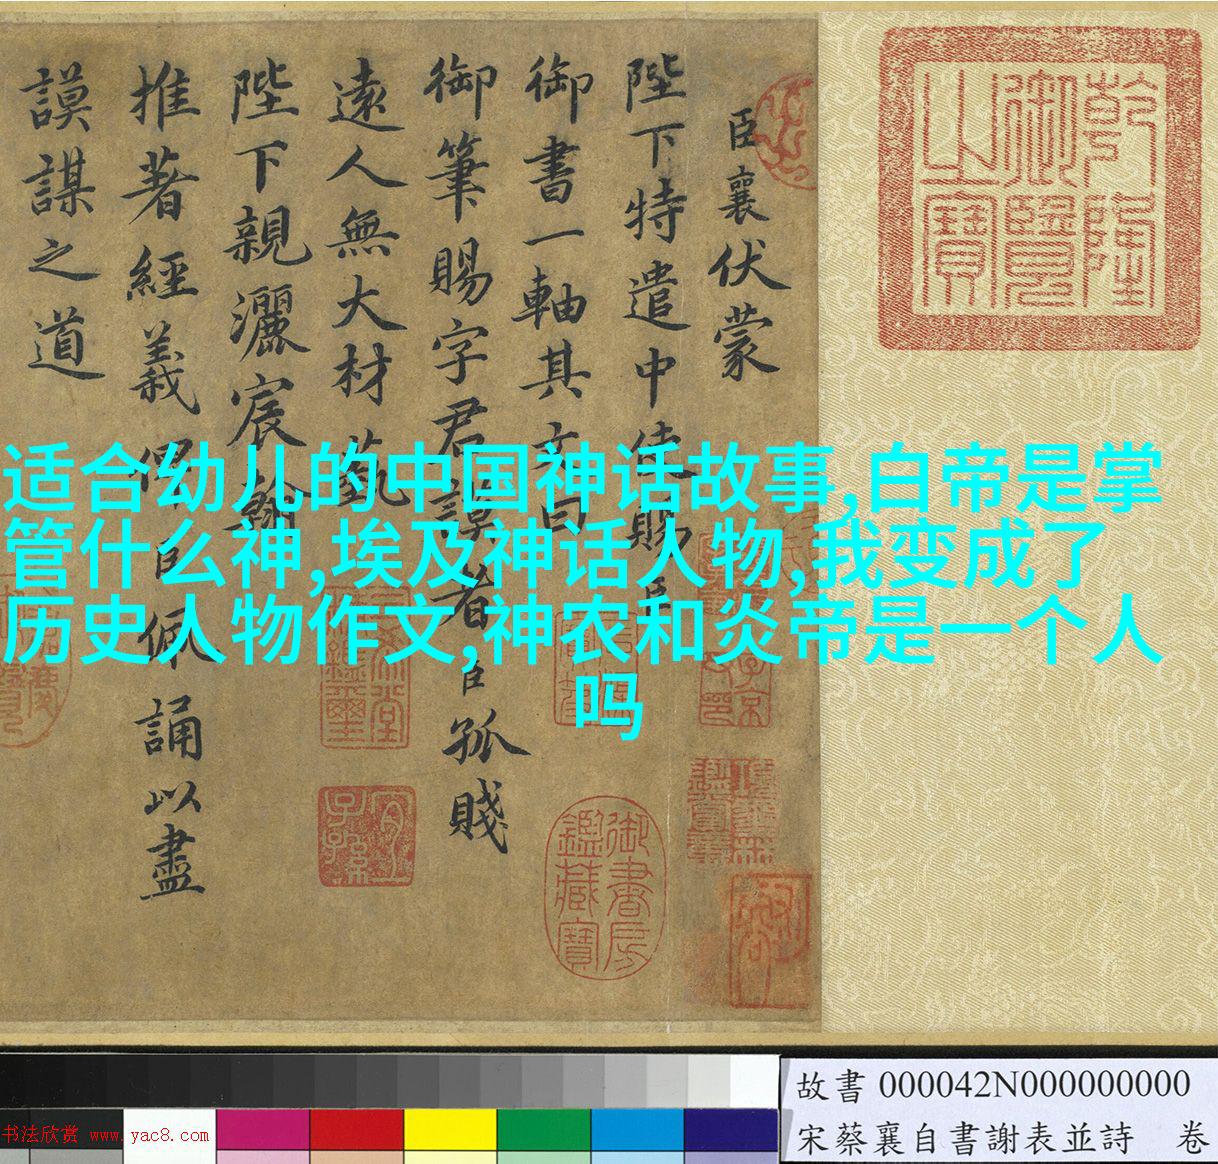 臣襄伏蒙
陛下特遣中使賜臣
御書一軸其文曰
御筆賜字君謨者臣孤賤
遠人無大材藝
陛下親灑宸翰
推著經義俾臣佩誦以盡
謨謀之道
乾隆
御覽
之寶
御書房
鑑藏寶
宜
子孫
适合幼儿的中国神话故事,白帝是掌
管什么神,埃及神话人物,我变成了
历史人物作文,神农和炎帝是一个人
吗
故書 000042N000000000
宋蔡襄自書謝表並詩 卷
书法欣赏 www.yac8.com